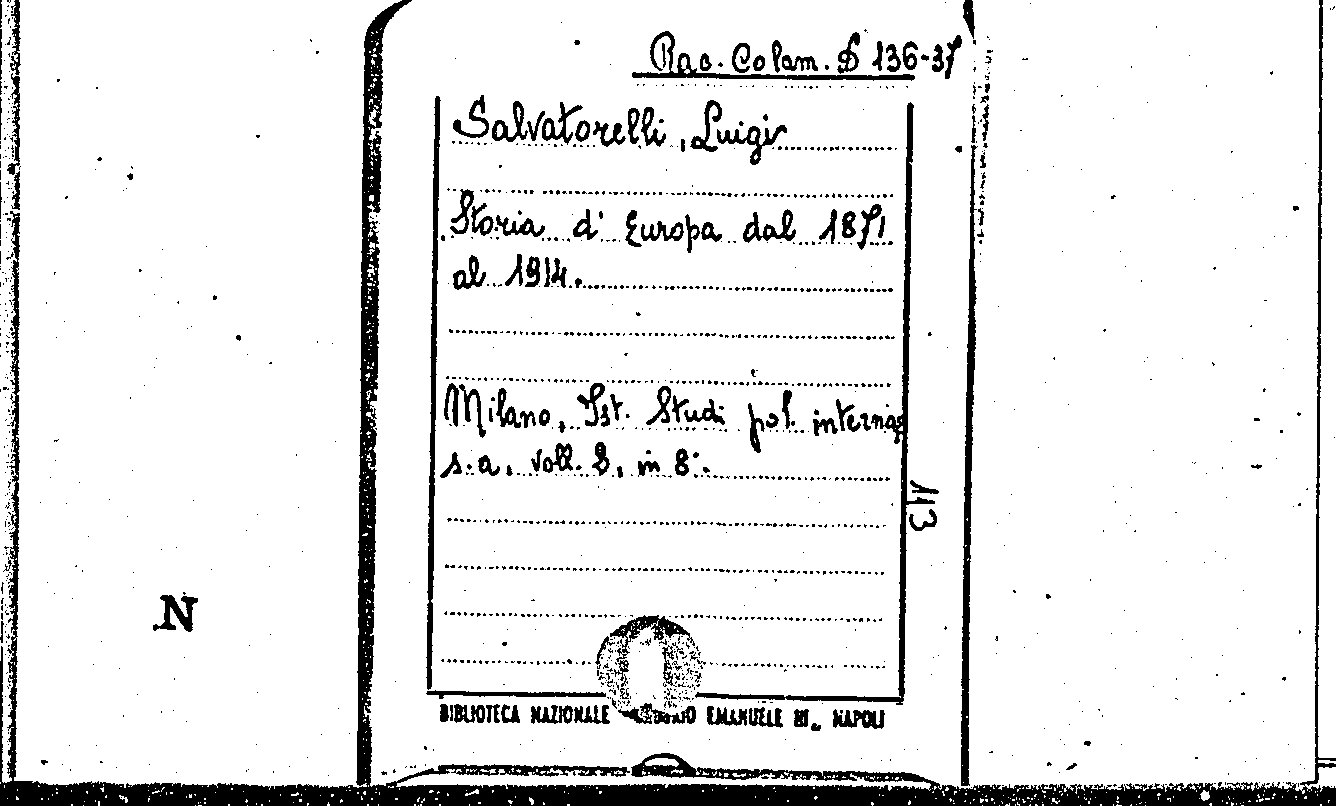 Rac. Colam. D 136-37
Salvatorelli, Luigi
Storia d' Europa dal 1871
al 1914.
Milano, Ist. Studi pol. internaz
s.a., voll. 2, in 8°.
113
N
BIBLIOTECA NAZIONALE EMANUELE III„ NAPOLI